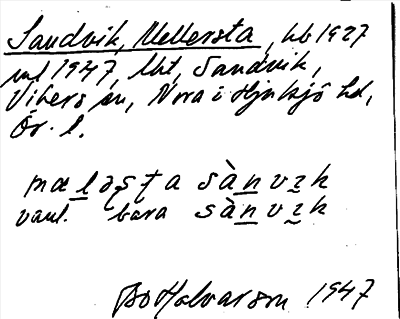 Sandvik, Mellersta, hb 1927
uml 1947, lht, Sandvik,
Vikers sn, Nora o Hjulsjö hd,
Ör. l.
mæləsta sànvik
vanl. bara sànvik
Bo Halvarson 1947